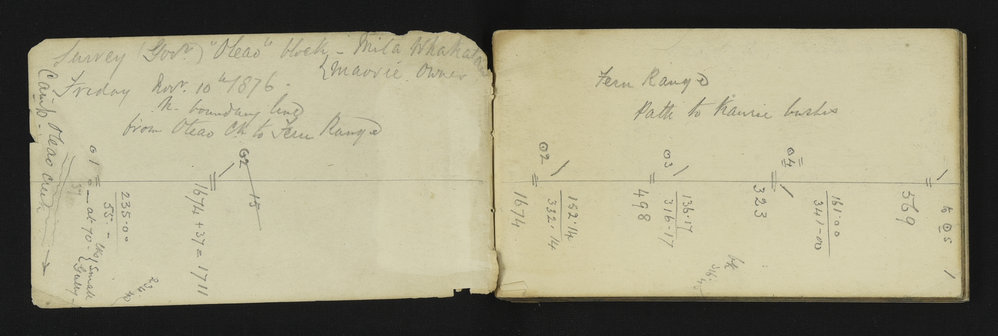 Survey (Govr.) "Oteao" block - Wila Whakat
{Maorie Owner
Friday Novr. 10th 1876.
N. boundary line
from Oteao Ck to Fern Range
Camp Oteao Creek
⊙1 =
235.00
55 -
at 70. {Small Gully
1674 + 37 = 1711
⊙2
15
Fern Range
Path to Kaurie bushes
⊙2
1674
152.14
332.14
⊙3
498
136.17
316.17
⊙4
323
161.00
341.00
569
to ⊙5